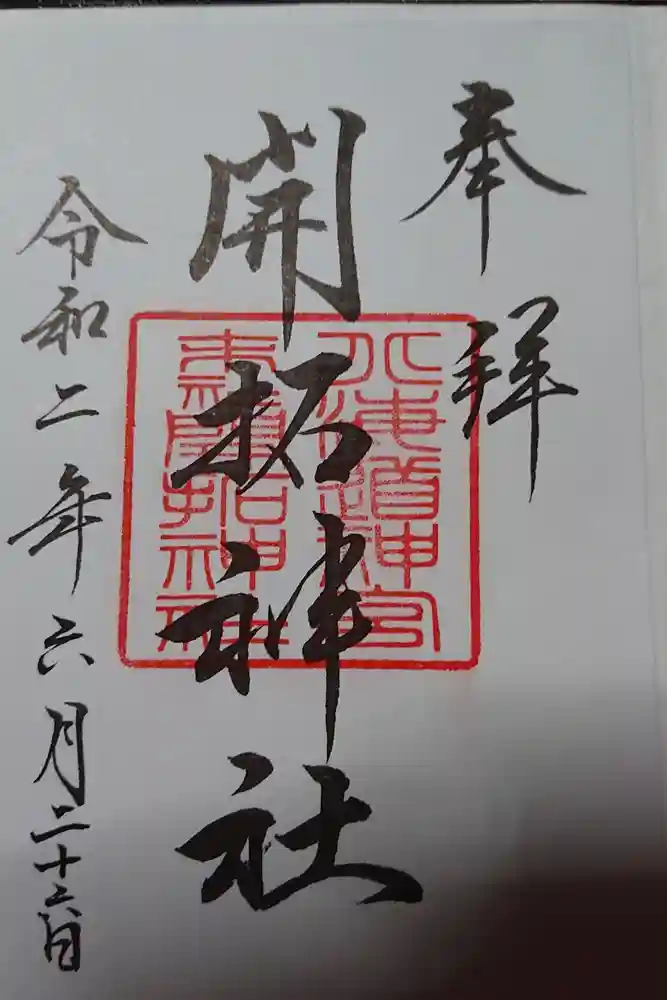 奉拝
開拓神社
北海道神宮
末開拓神社
令和二年六月二十六日